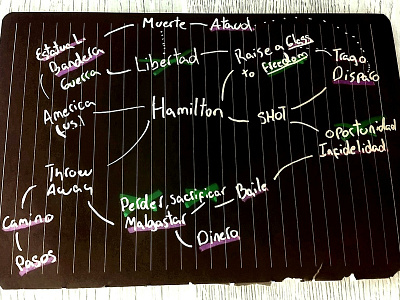 Muerte
Ataud
Estatua L
Bandera
Guerra
Libertad
Raise a Glass
to Freedom
Trago
Disparo
America
(us)
Hamilton
SHOT
oportunidad
Infidelidad
Throw
Away
Perder, sacrificar
Malgastar
Baile
Camino
Dinero
Pasos